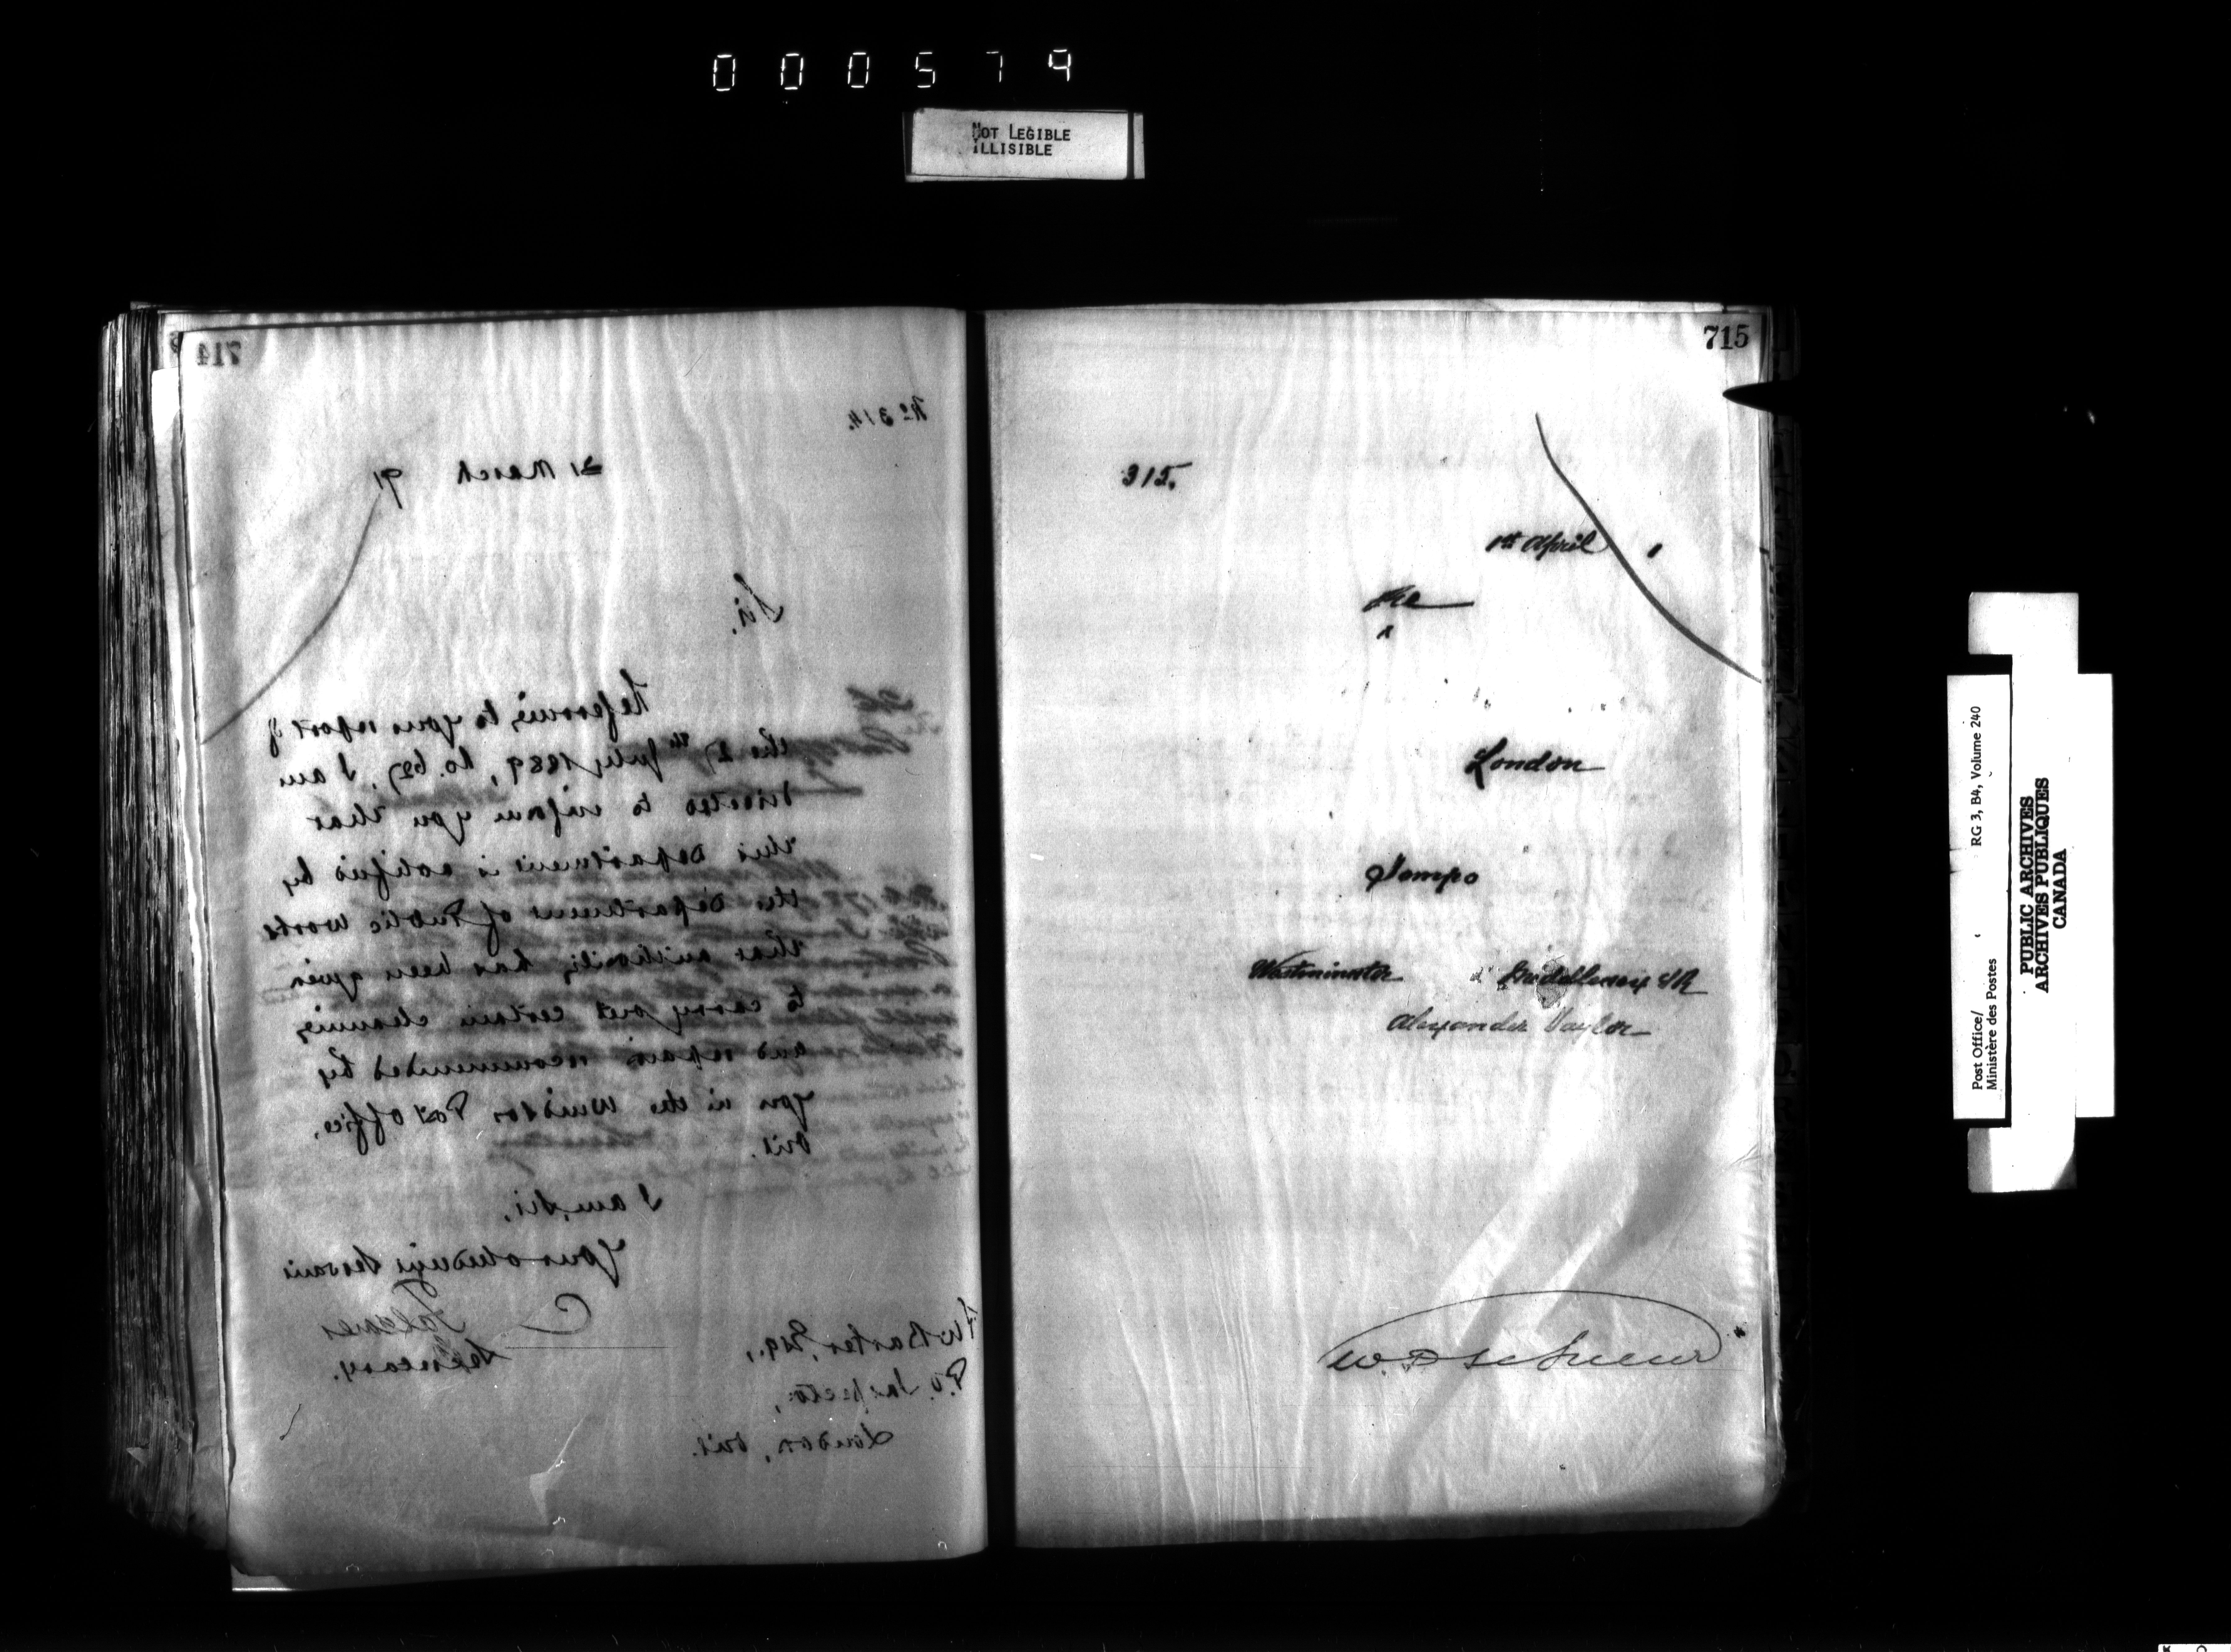 000579
NOT LEGIBLE
ILLISIBLE
714
No 314.
31 March 91
Sir,
Referring to your report of
the 27th July, 1889, no. 627, I am
directed to inform you that
this Department is notified by
the Department of Public Works
that authority has been given
to carry out certain cleaning
and repairs recommended by
you in the Windsor Post Office,
Ont.
I am, Sir,
Your obedient Servant
Secretary.
Barker, Esq.,
P.O. Inspector,
London, Ont.
715
315.
1st April 1
London
Tempo
Westminster Middlesex E/R
Alexander Taylor
Post Office/ RG 3, B4, Volume 240
Ministère des Postes
PUBLIC ARCHIVES
ARCHIVES PUBLIQUES
CANADA